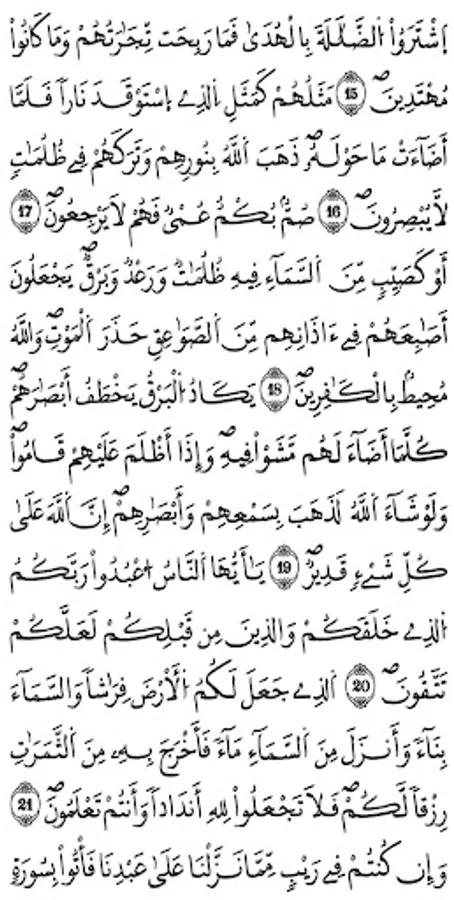 اِ۪شْتَرَوُاْ اُ۬لضَّلَٰلَةَ بِالْهُد۪يٰ فَمَا رَبِحَت تِّجَٰرَتُهُمْ وَمَا كَانُواْ
مُهْتَدِينَۖ 15 مَثَلُهُمْ كَمَثَلِ اِ۬لذِے اِ۪سْتَوْقَدَ نَاراٗ فَلَمَّا
أَضَآءَتْ مَا حَوْلَهُۥ ذَهَبَ اَ۬للَّهُ بِنُورِهِمْ وَتَرَكَهُمْ فِے ظُلُمَٰتٖ
لَّا يُبْصِرُونَۖ 16 صُمُّۢ بُكْمٌ عُمْيٞ فَهُمْ لَا يَرْجِعُونَۖ 17
أَوْ كَصَيِّبٖ مِّنَ اَ۬لسَّمَآءِ فِيهِ ظُلُمَٰتٞ وَرَعْدٞ وَبَرْقٞۖ يَجْعَلُونَ
أَصَٰبِعَهُمْ فِےٓ ءَاذَانِهِم مِّنَ اَ۬لصَّوَٰعِقِ حَذَرَ اَ۬لْمَوْتِۖ وَاللَّهُ
مُحِيطُۢ بِالْكَٰفِرِينَۖ 18 يَكَادُ اُ۬لْبَرْقُ يَخْطَفُ أَبْصَٰرَهُمْۖ
كُلَّمَآ أَضَآءَ لَهُم مَّشَوْاْ فِيهِۖ وَإِذَآ أَظْلَمَ عَلَيْهِمْ قَامُواْۖ
وَلَوْ شَآءَ اَ۬للَّهُ لَذَهَبَ بِسَمْعِهِمْ وَأَبْصَٰرِهِمْۖ إِنَّ اَ۬للَّهَ عَلَيٰ
كُلِّ شَےْءٖ قَدِيرٞۖ 19 يَٰٓأَيُّهَا اَ۬لنَّاسُ اُ۟عْبُدُواْ رَبَّكُمُ
اُ۬لذِے خَلَقَكُمْ وَالذِينَ مِن قَبْلِكُمْ لَعَلَّكُمْ
تَتَّقُونَۖ 20 اَ۬لذِے جَعَلَ لَكُمُ اُ۬لْأَرْضَ فِرَٰشاٗ وَالسَّمَآءَ
بِنَآءٗ وَأَنزَلَ مِنَ اَ۬لسَّمَآءِ مَآءٗ فَأَخْرَجَ بِهِۦ مِنَ اَ۬لثَّمَرَٰتِ
رِزْقاٗ لَّكُمْۖ فَلَا تَجْعَلُواْ لِلهِ أَندَاداٗ وَأَنتُمْ تَعْلَمُونَۖ 21
وَإِن كُنتُمْ فِے رَيْبٖ مِّمَّا نَزَّلْنَا عَلَيٰ عَبْدِنَا فَأْتُواْ بِسُورَةٖ